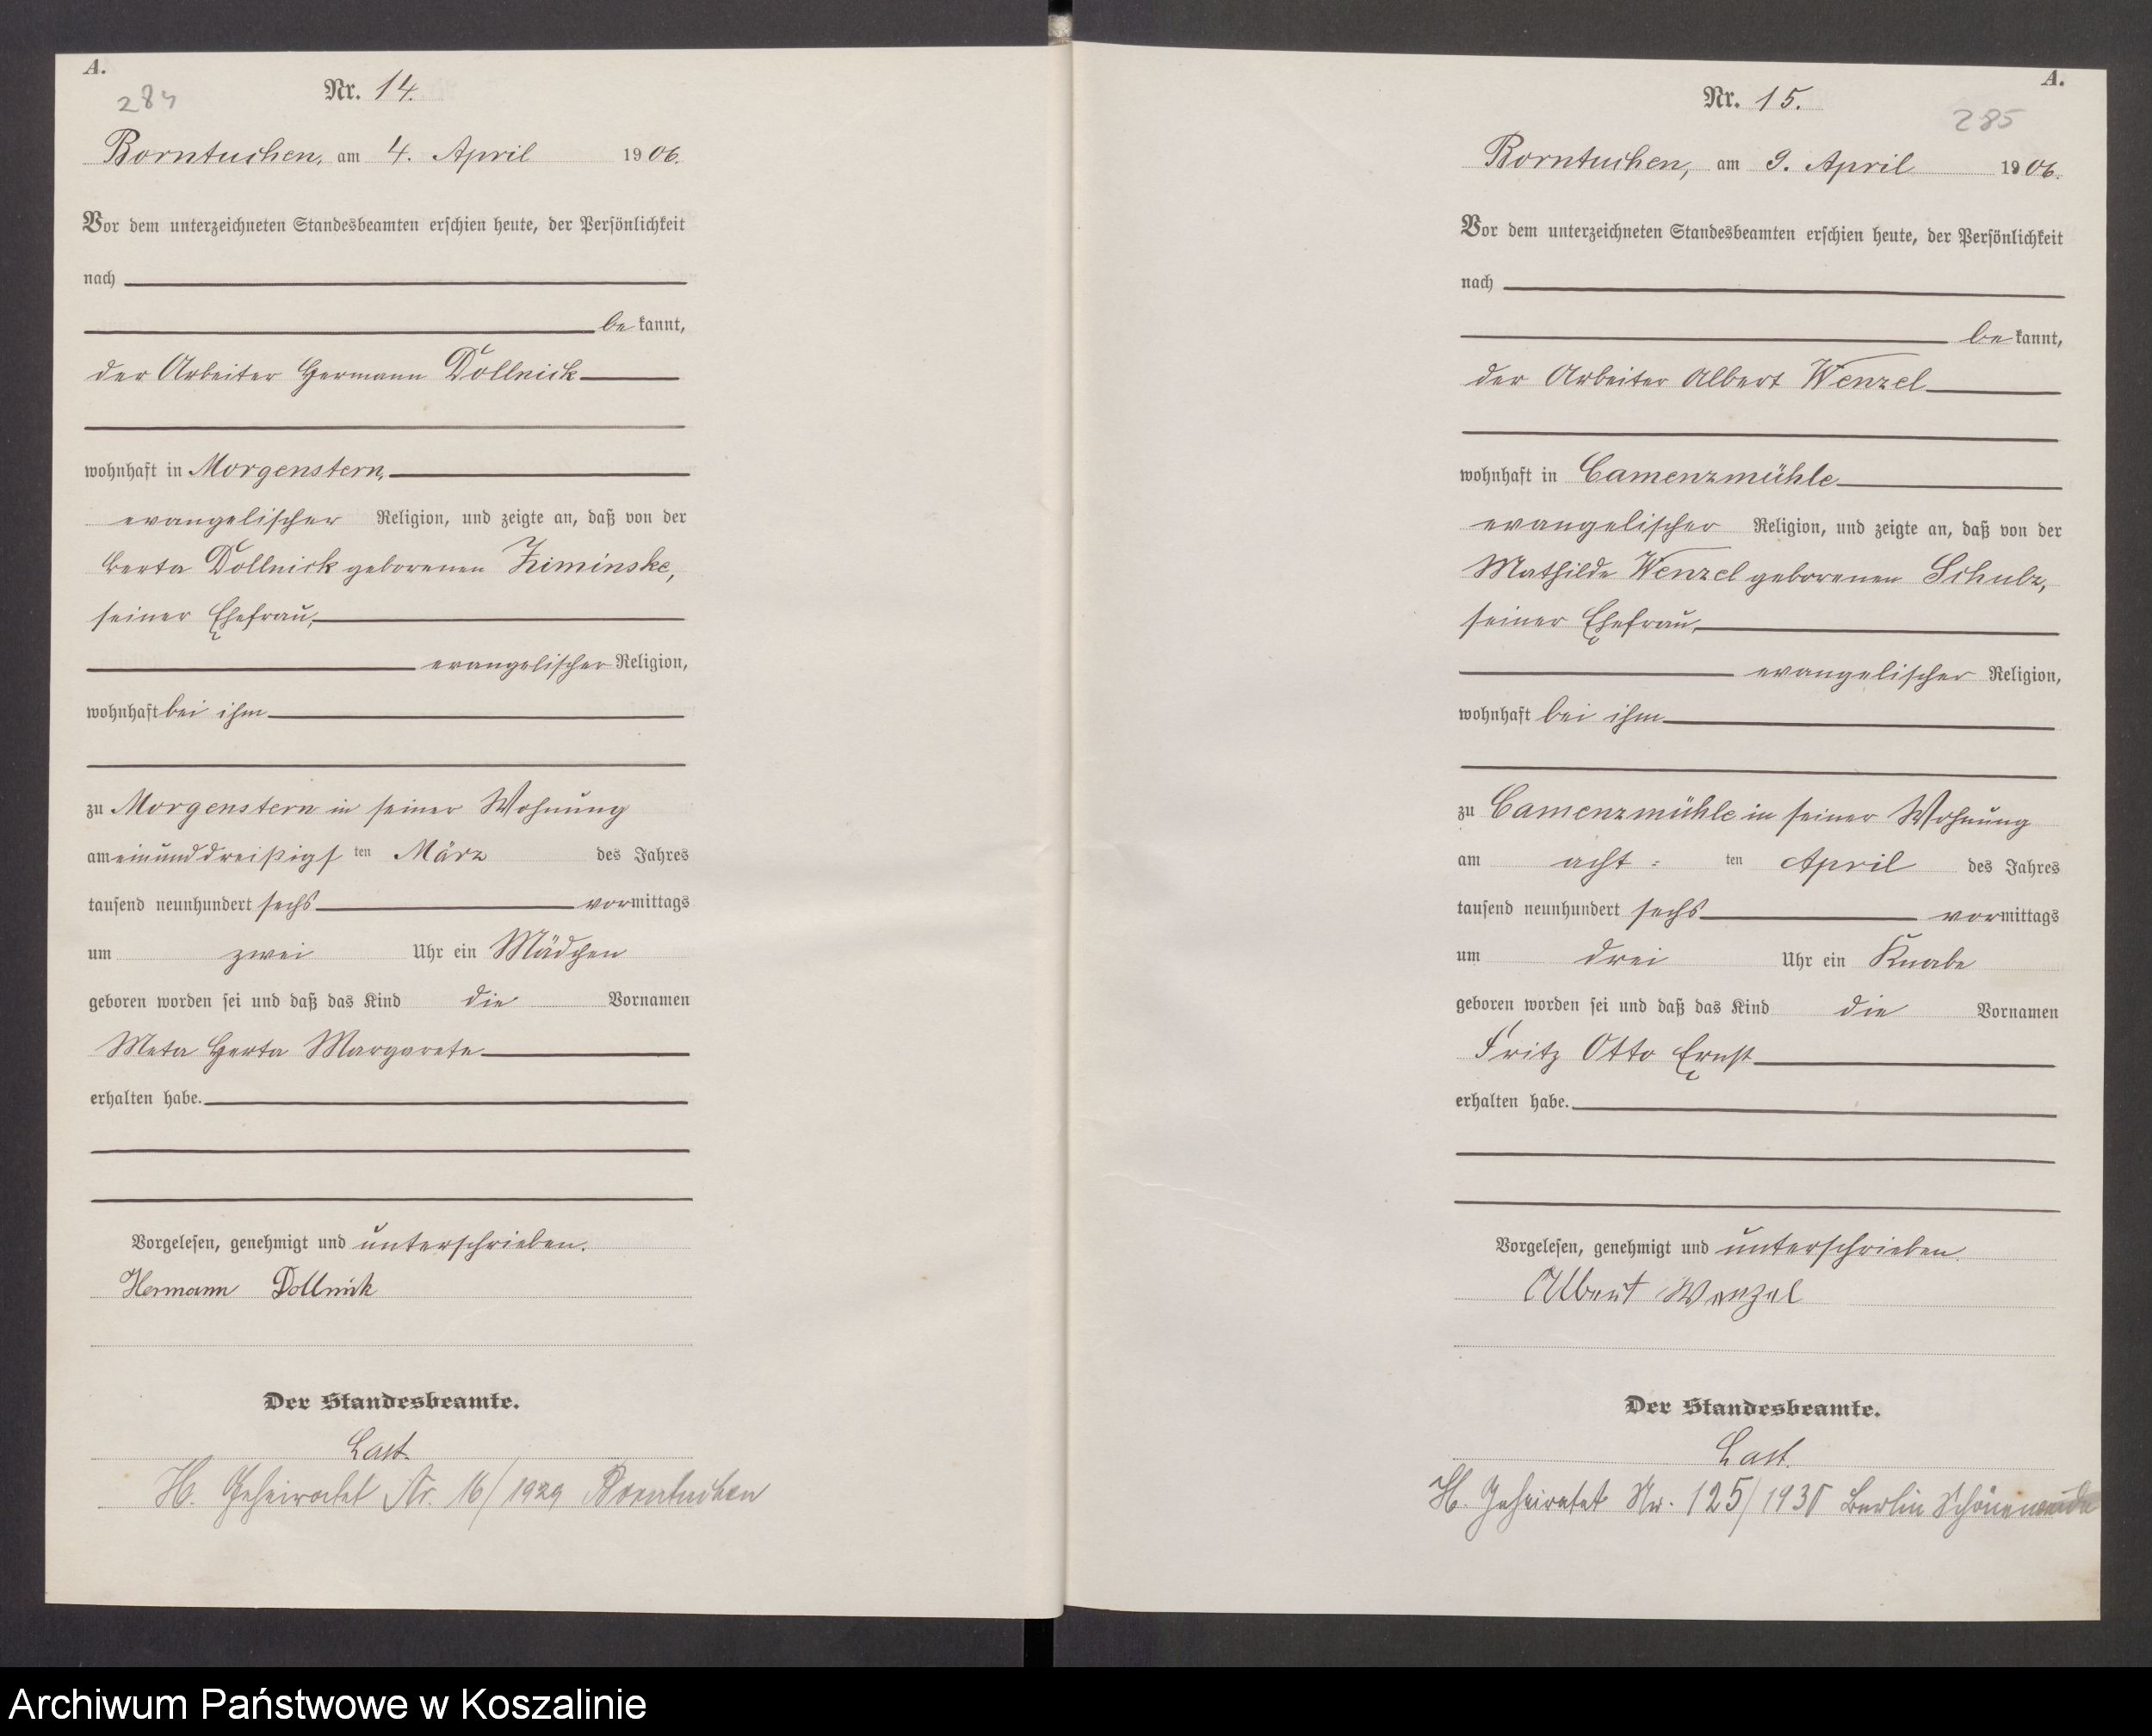 A.
284
Nr. 14.
Borntuchen, am 4. April 1906.
Vor dem unterzeichneten Standesbeamten erschien heute, der Persönlichkeit
nach
bekannt,
der Arbeiter Hermann Dollnick
wohnhaft in Morgenstern,
evangelischer Religion, und zeigte an, daß von der
Berta Dollnick geborenen Ziminske,
seiner Ehefrau,
evangelischer Religion,
wohnhaft bei ihm
zu Morgenstern in seiner Wohnung
am einunddreißigsten März des Jahres
tausend neunhundert sechs vormittags
um zwei Uhr ein Mädchen
geboren worden sei und daß das Kind die Vornamen
Meta Herta Margarete
erhalten habe.
Vorgelesen, genehmigt und unterschrieben.
Hermann Dollnick
Der Standesbeamte.
Last.
H. Geheiratet Nr. 16/1929 Borntuchen
A.
285
Nr. 15.
Borntuchen, am 9. April 1906.
Vor dem unterzeichneten Standesbeamten erschien heute, der Persönlichkeit
nach
bekannt,
der Arbeiter Albert Wenzel
wohnhaft in Camenzmühle
evangelischer Religion, und zeigte an, daß von der
Mathilde Wenzel geborenen Schulz,
seiner Ehefrau,
evangelischer Religion,
wohnhaft bei ihm
zu Camenzmühle in seiner Wohnung
am acht=ten April des Jahres
tausend neunhundert sechs vormittags
um drei Uhr ein Knabe
geboren worden sei und daß das Kind die Vornamen
Fritz Otto Ernst
erhalten habe.
Vorgelesen, genehmigt und unterschrieben.
Albert Wenzel
Der Standesbeamte.
Last.
H. Geheiratet Nr. 125/ Berlin
Archiwum Państwowe w Koszalinie